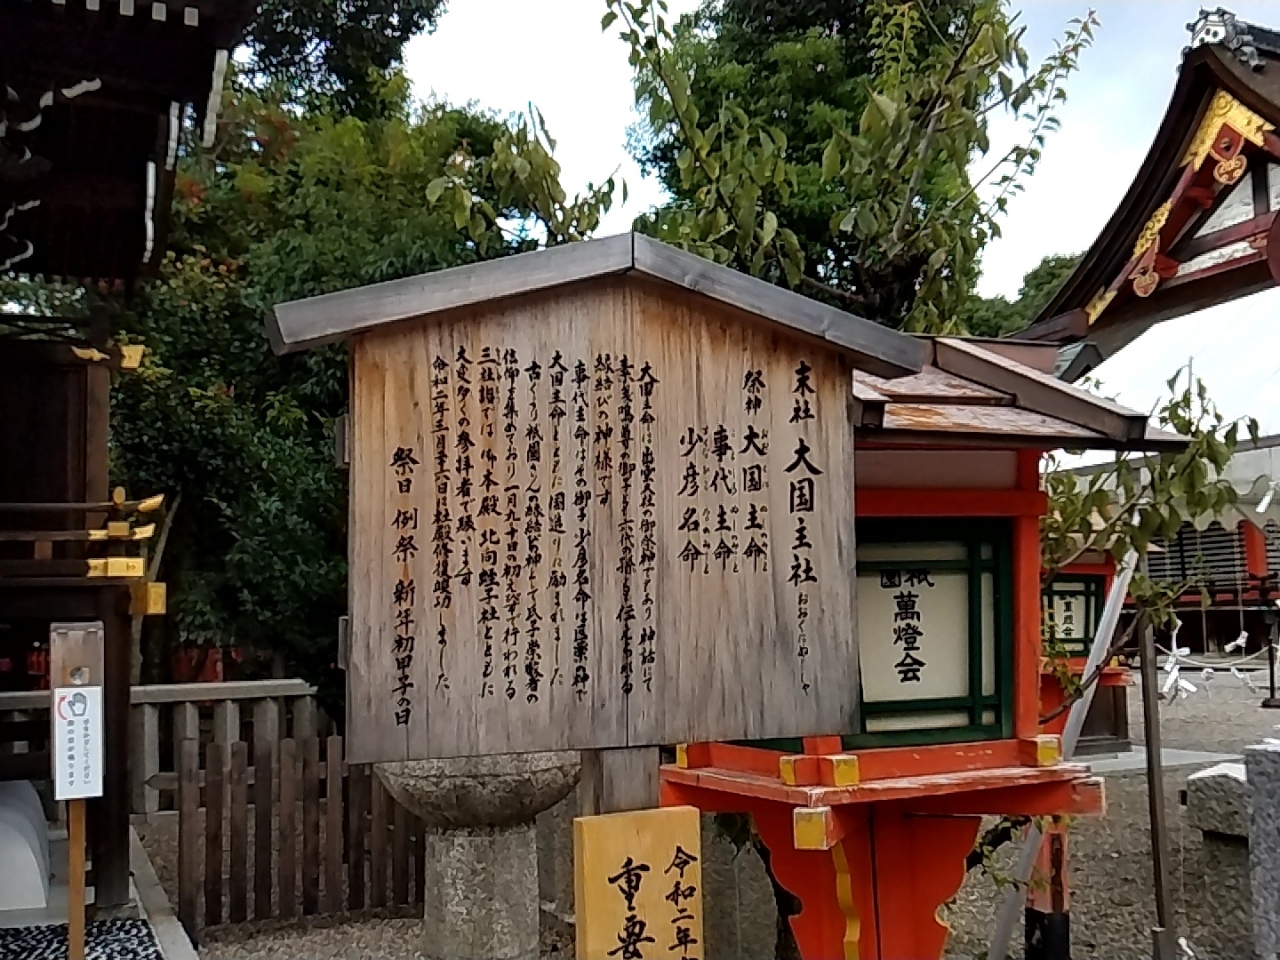 末社 大国主社 おおくにぬししゃ
祭神 大国主命
事代主命
少彦名命
大国主命は出雲大社の御祭神であり 神話にて
素戔嗚尊の御子とも六代の孫とも伝えられる
縁結びの神様です
事代主命はその御子 少彦名命は医薬の神で
大国主命とともに国造りに励まれました
古くより祇園さんの縁結びの神として氏子崇敬者の
信仰を集めており 一月九 十日の初ゑびすで行われる
三社詣では 御本殿 北向蛭子社とともに
大変多くの参拝者で賑います
令和二年三月二十六日に社殿修復竣功しました。
祭日 例祭 新年初甲子の日
祇園
萬燈会
令和二年
重要
手をかざしてください
鈴の音が鳴ります